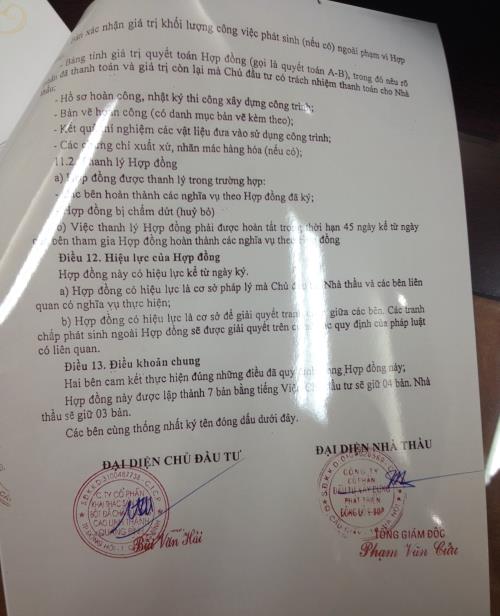 xác nhận giá trị khối lượng công việc phát sinh (nếu có) ngoài phạm vi Hợp
- Bảng tính giá trị quyết toán Hợp đồng (gọi là quyết toán A-B), trong đó nêu rõ
đã thanh toán và giá trị còn lại mà Chủ đầu tư có trách nhiệm thanh toán cho Nhà
thầu;
- Hồ sơ hoàn công, nhật ký thi công xây dựng công trình;
- Bản vẽ hoàn công (có danh mục bản vẽ kèm theo);
- Kết quả thí nghiệm các vật liệu đưa vào sử dụng công trình;
- Các chứng chỉ xuất xứ, nhãn mác hàng hóa (nếu có);
11.2. Thanh lý Hợp đồng
a) Hợp đồng được thanh lý trong trường hợp:
- Các bên hoàn thành các nghĩa vụ theo Hợp đồng đã ký;
- Hợp đồng bị chấm dứt (huỷ bỏ)
b) Việc thanh lý Hợp đồng phải được hoàn tất trong thời hạn 45 ngày kể từ ngày
các bên tham gia Hợp đồng hoàn thành các nghĩa vụ theo Hợp đồng
Điều 12. Hiệu lực của Hợp đồng
Hợp đồng này có hiệu lực kể từ ngày ký.
a) Hợp đồng có hiệu lực là cơ sở pháp lý mà Chủ đầu tư, Nhà thầu và các bên liên
quan có nghĩa vụ thực hiện;
b) Hợp đồng có hiệu lực là cơ sở để giải quyết tranh chấp giữa các bên. Các tranh
chấp phát sinh ngoài Hợp đồng sẽ được giải quyết trên cơ sở các quy định của pháp luật
có liên quan.
Điều 13. Điều khoản chung
Hai bên cam kết thực hiện đúng những điều đã quy định trong Hợp đồng này;
Hợp đồng này được lập thành 7 bản bằng tiếng Việt, Chủ đầu tư sẽ giữ 04 bản. Nhà
thầu sẽ giữ 03 bản.
Các bên cùng thống nhất ký tên đóng dấu dưới đây.
ĐẠI DIỆN CHỦ ĐẦU TƯ
ĐẠI DIỆN NHÀ THẦU
C.TY CỔ PHẦN
KHAI THÁC
BỘT ĐÁ
CAO LINH THÀNH
QUẢNG BÌNH
Bùi Văn Hải
CÔNG TY
CỔ PHẦN
ĐẦU TƯ XÂY DỰNG
PHÁT TRIỂN
ĐÔNG ĐÔ - BQP
TỔNG GIÁM ĐỐC
Phạm Văn Cửu